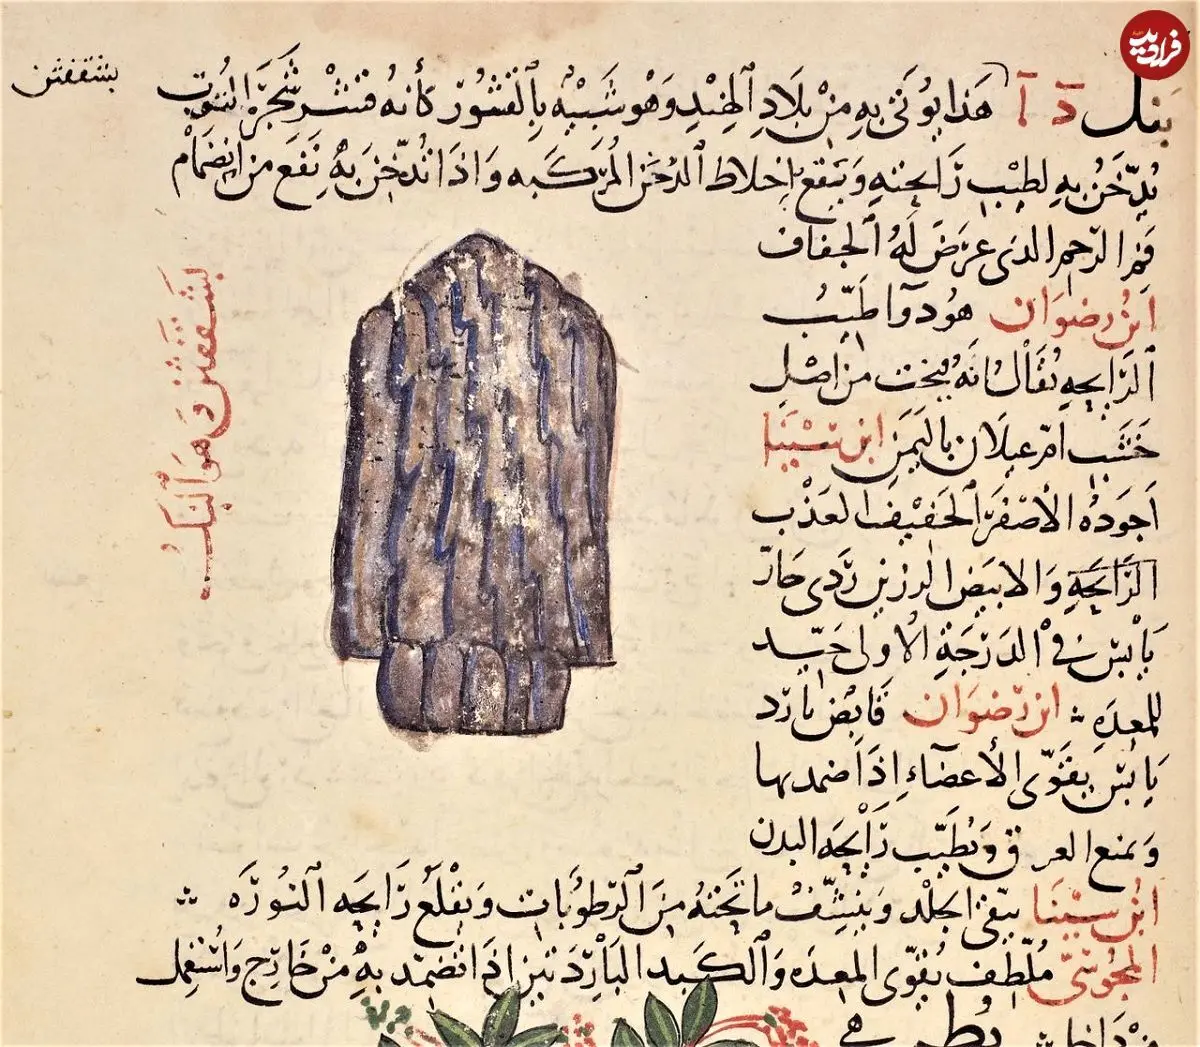 بنك د آ هذا يوتى به من بلاد الهند وهو شبيه بالقشور كأنه قشر شجرة التوت
يدخن به لطيب رايحته ويقع باخلاط الدخن المركبه واذا تدخن به نفع من انضمام
فم الرحم الذى عرض له الجفاف
ابن رضوان هو دوا طيب
الرايحه يقال انه ينحت من اصل
خشب ام غيلان باليمن ابن سينا
اجوده الاصفر الخفيف العذب
الرايحة والابيض الرزين ردى حار
يابس فى الدرجة الاولى جيد
للمعده ابن رضوان قابض بارد
يابس يقوى الأعضاء إذا ضمد بها
ويمنع العرق ويطيب رايحه البدن
ابن سينا ينقى الجلد وينشف ما تحته من الرطوبات ويقلع رايحه النوره
المجوسى ملطف يقوى المعده والكبد الباردتين اذا تضمد به من خارج واستعمل
من داخل
بشقفثن
بشقفثن د هو البنك
فرادید